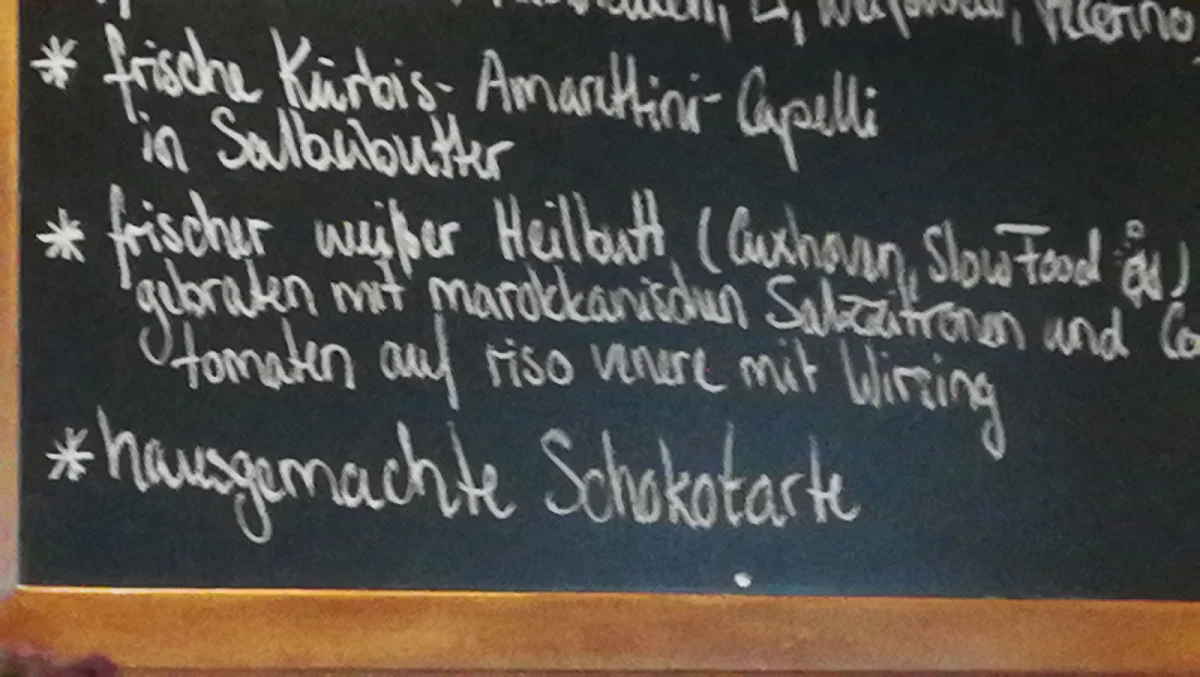 Pecorino
* frische Kürbis- Amarettini- Capelli
in Salbeibutter
* frischer weißer Heilbutt (Cuxhaven, Slow Food
gebraten mit marokkanischen Salzzitronen und
tomaten auf riso venere mit Wirsing
* hausgemachte Schokotarte